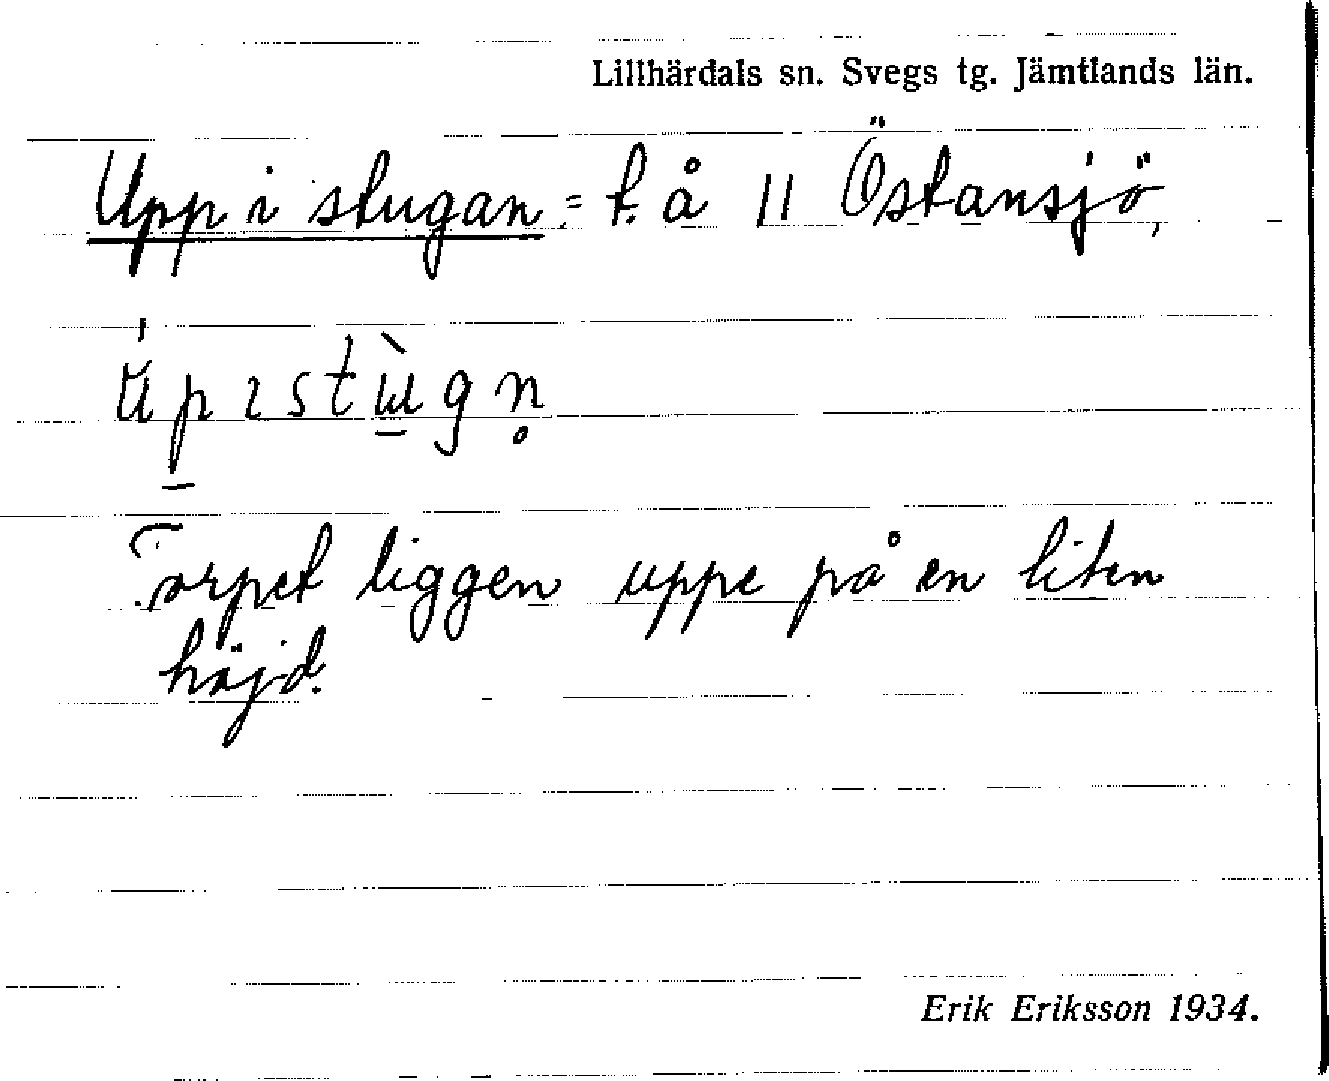 Lillhärdals sn. Svegs tg. Jämtlands län.
Upp i stugan = t. å 11 Östansjö,
úp ɪstùgn̥
Torpet ligger uppe på en liten
höjd.
Erik Eriksson 1934.